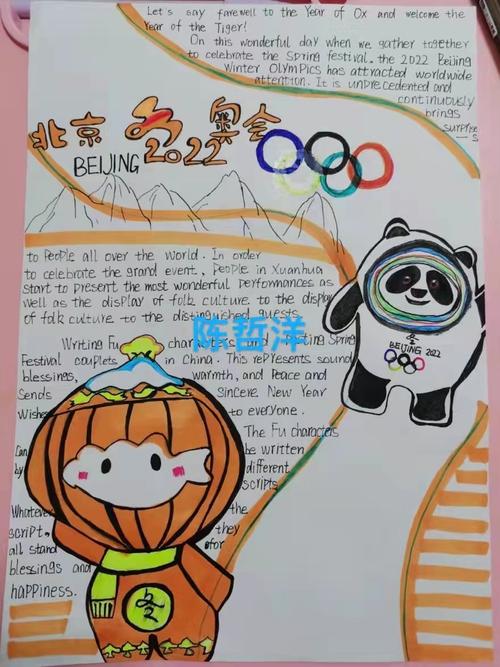 Let's say farewell to the Year of Ox and welcome the
Year of the Tiger!
On this wonderful day when we gather together
to celebrate the Spring festival. the 2022 Beijing
Winter OLYMPics has attracted worldwide
attention. It is unprecedented and
continuously
brings
surprise
s
北京 冬 奥会
BEIJING 2022
to people all over the world. In order
to celebrate the grand event, People in Xuanhua
start to present the most wonderful performances as
well as the disPlay of folk culture to the display
of folk culture to the distinguished guests.
陈哲洋
BEIJING 2022
Writing Fu characters and Spring
Festival couplets in China. This rePresents sound
blessings, warmth, and Peace and
Sends Sincere New Year
Wishes to everyone.
The Fu characters
Can be written
by different
scripts
Whatever the
script, they
all stand for
blessings and
haPPiness.